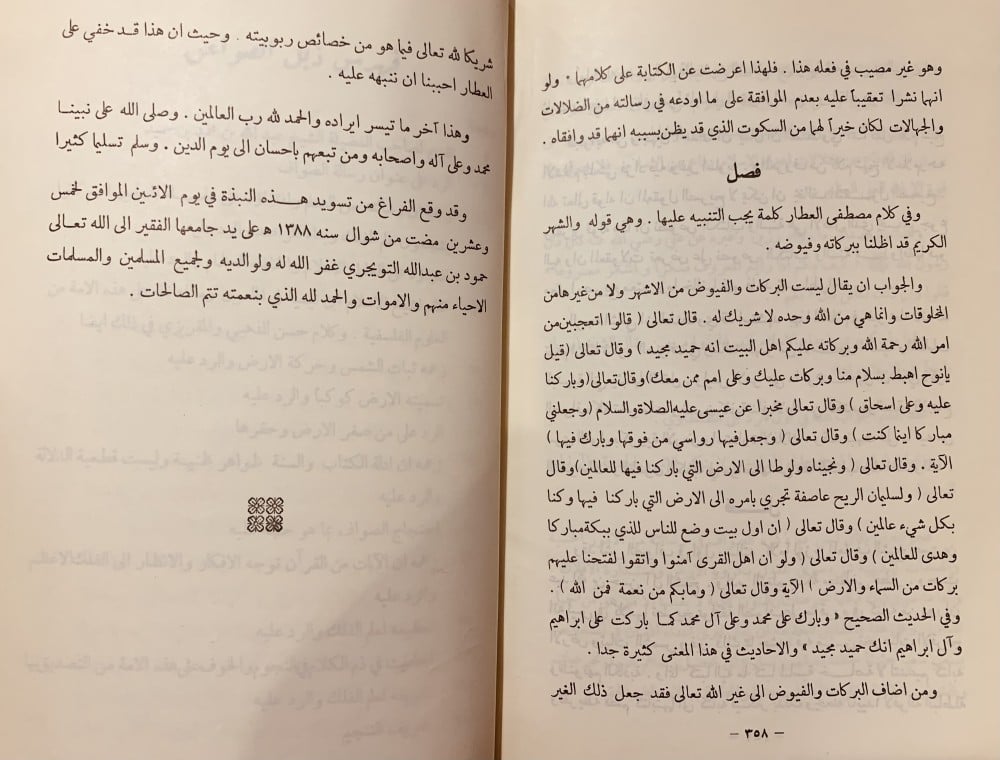 وهو غير مصيب في فعله هذا . فلهذا اعرضت عن الكتابة على كلامهما . ولو
انهما نشرا تعقيباً عليه بعدم الموافقة على ما اودعه في رسالته من الضلالات
والجهالات لكان خيراً لهما من السكوت الذي قد يظن بسببه انهما قد وافقاه .
فصل
وفي كلام مصطفى العطار كلمة يجب التنبيه عليها . وهي قوله والشهر
الكريم قد اظلنا ببركاته وفيوضه .
والجواب ان يقال ليست البركات والفيوض من الاشهر ولا من غيرها من
المخلوقات وانما هي من الله وحده لا شريك له . قال تعالى ( قالوا اتعجبين من
امر الله رحمة الله وبركاته عليكم اهل البيت انه حميد مجيد ) وقال تعالى ( قيل
يانوح اهبط بسلام منا وبركات عليك وعلى امم ممن معك) وقال تعالى (وباركنا
عليه وعلى اسحاق ) وقال تعالى مخبرا عن عيسى عليه الصلاة والسلام ( وجعلني
مباركا اينما كنت ) وقال تعالى ( وجعل فيها رواسي من فوقها وبارك فيها )
الآية . وقال تعالى ( ونجيناه ولوطا الى الارض التي باركنا فيها للعالمين) وقال
تعالى ( ولسليمان الريح عاصفة تجري بامره الى الارض التي باركنا فيها وكنا
بكل شيء عالمين ) وقال تعالى ( ان اول بيت وضع للناس للذي ببكة مباركا
وهدى للعالمين ) وقال تعالى ( ولو ان اهل القرى آمنوا واتقوا لفتحنا عليهم
بركات من السماء والارض ) الآية وقال تعالى ( ومابكم من نعمة فمن الله ) .
وفي الحديث الصحيح « وبارك على محمد وعلى آل محمد كما باركت على ابراهيم
وآل ابراهيم انك حميد مجيد » والاحاديث في هذا المعنى كثيرة جدا .
ومن اضاف البركات والفيوض الى غير الله تعالى فقد جعل ذلك الغير
– ٣٥٨ –
شريكا لله تعالى فيما هو من خصائص ربوبيته . وحيث ان هذا قد خفي على
العطار احببنا ان ننبهه عليه .
وهذا آخر ما تيسر ايراده والحمد لله رب العالمين . وصلى الله على نبينا
محمد وعلى آله واصحابه ومن تبعهم باحسان الى يوم الدين . وسلم تسليما كثيرا
وقد وقع الفراغ من تسويد هذه النبذة في يوم الاثنين الموافق لخمس
وعشرين مضت من شوال سنه ١٣٨٨ ه على يد جامعها الفقير الى الله تعالى
حمود بن عبدالله التويجري غفر الله له ولوالديه ولجميع المسلمين والمسلمات
الاحياء منهم والاموات والحمد لله الذي بنعمته تتم الصالحات .